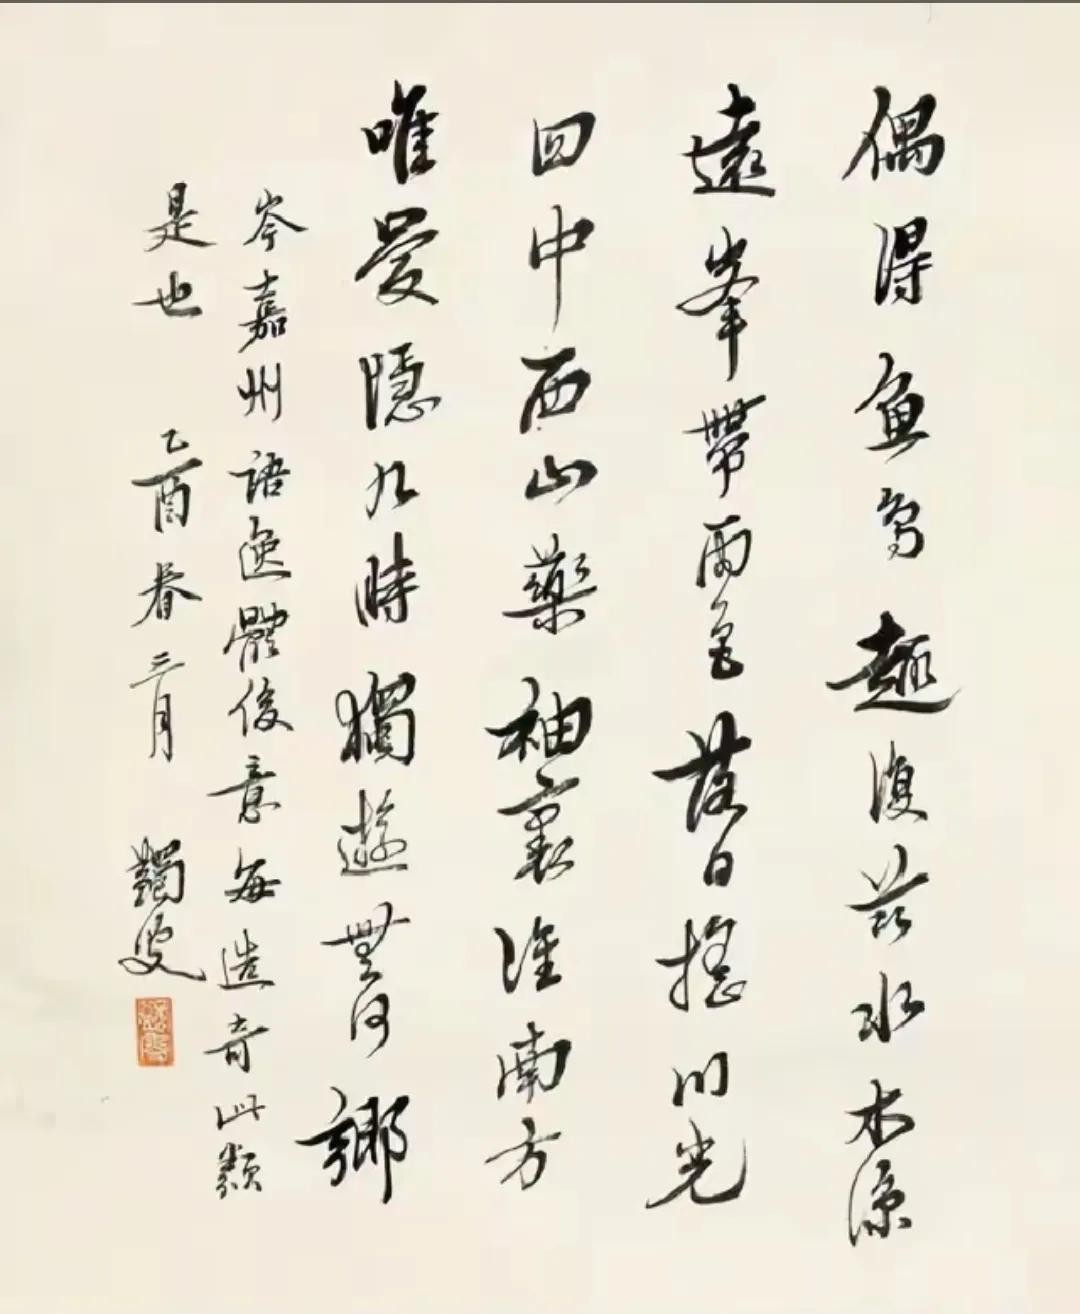 偶得魚鳥趣復茲水木涼
遠峯帶雨色落日搖川光
臼中西山藥袖裏淮南方
唯愛隱几時獨遊無何鄉
岑嘉州語逸體俊意每造奇此類
是也 乙酉春三月 蠲叟